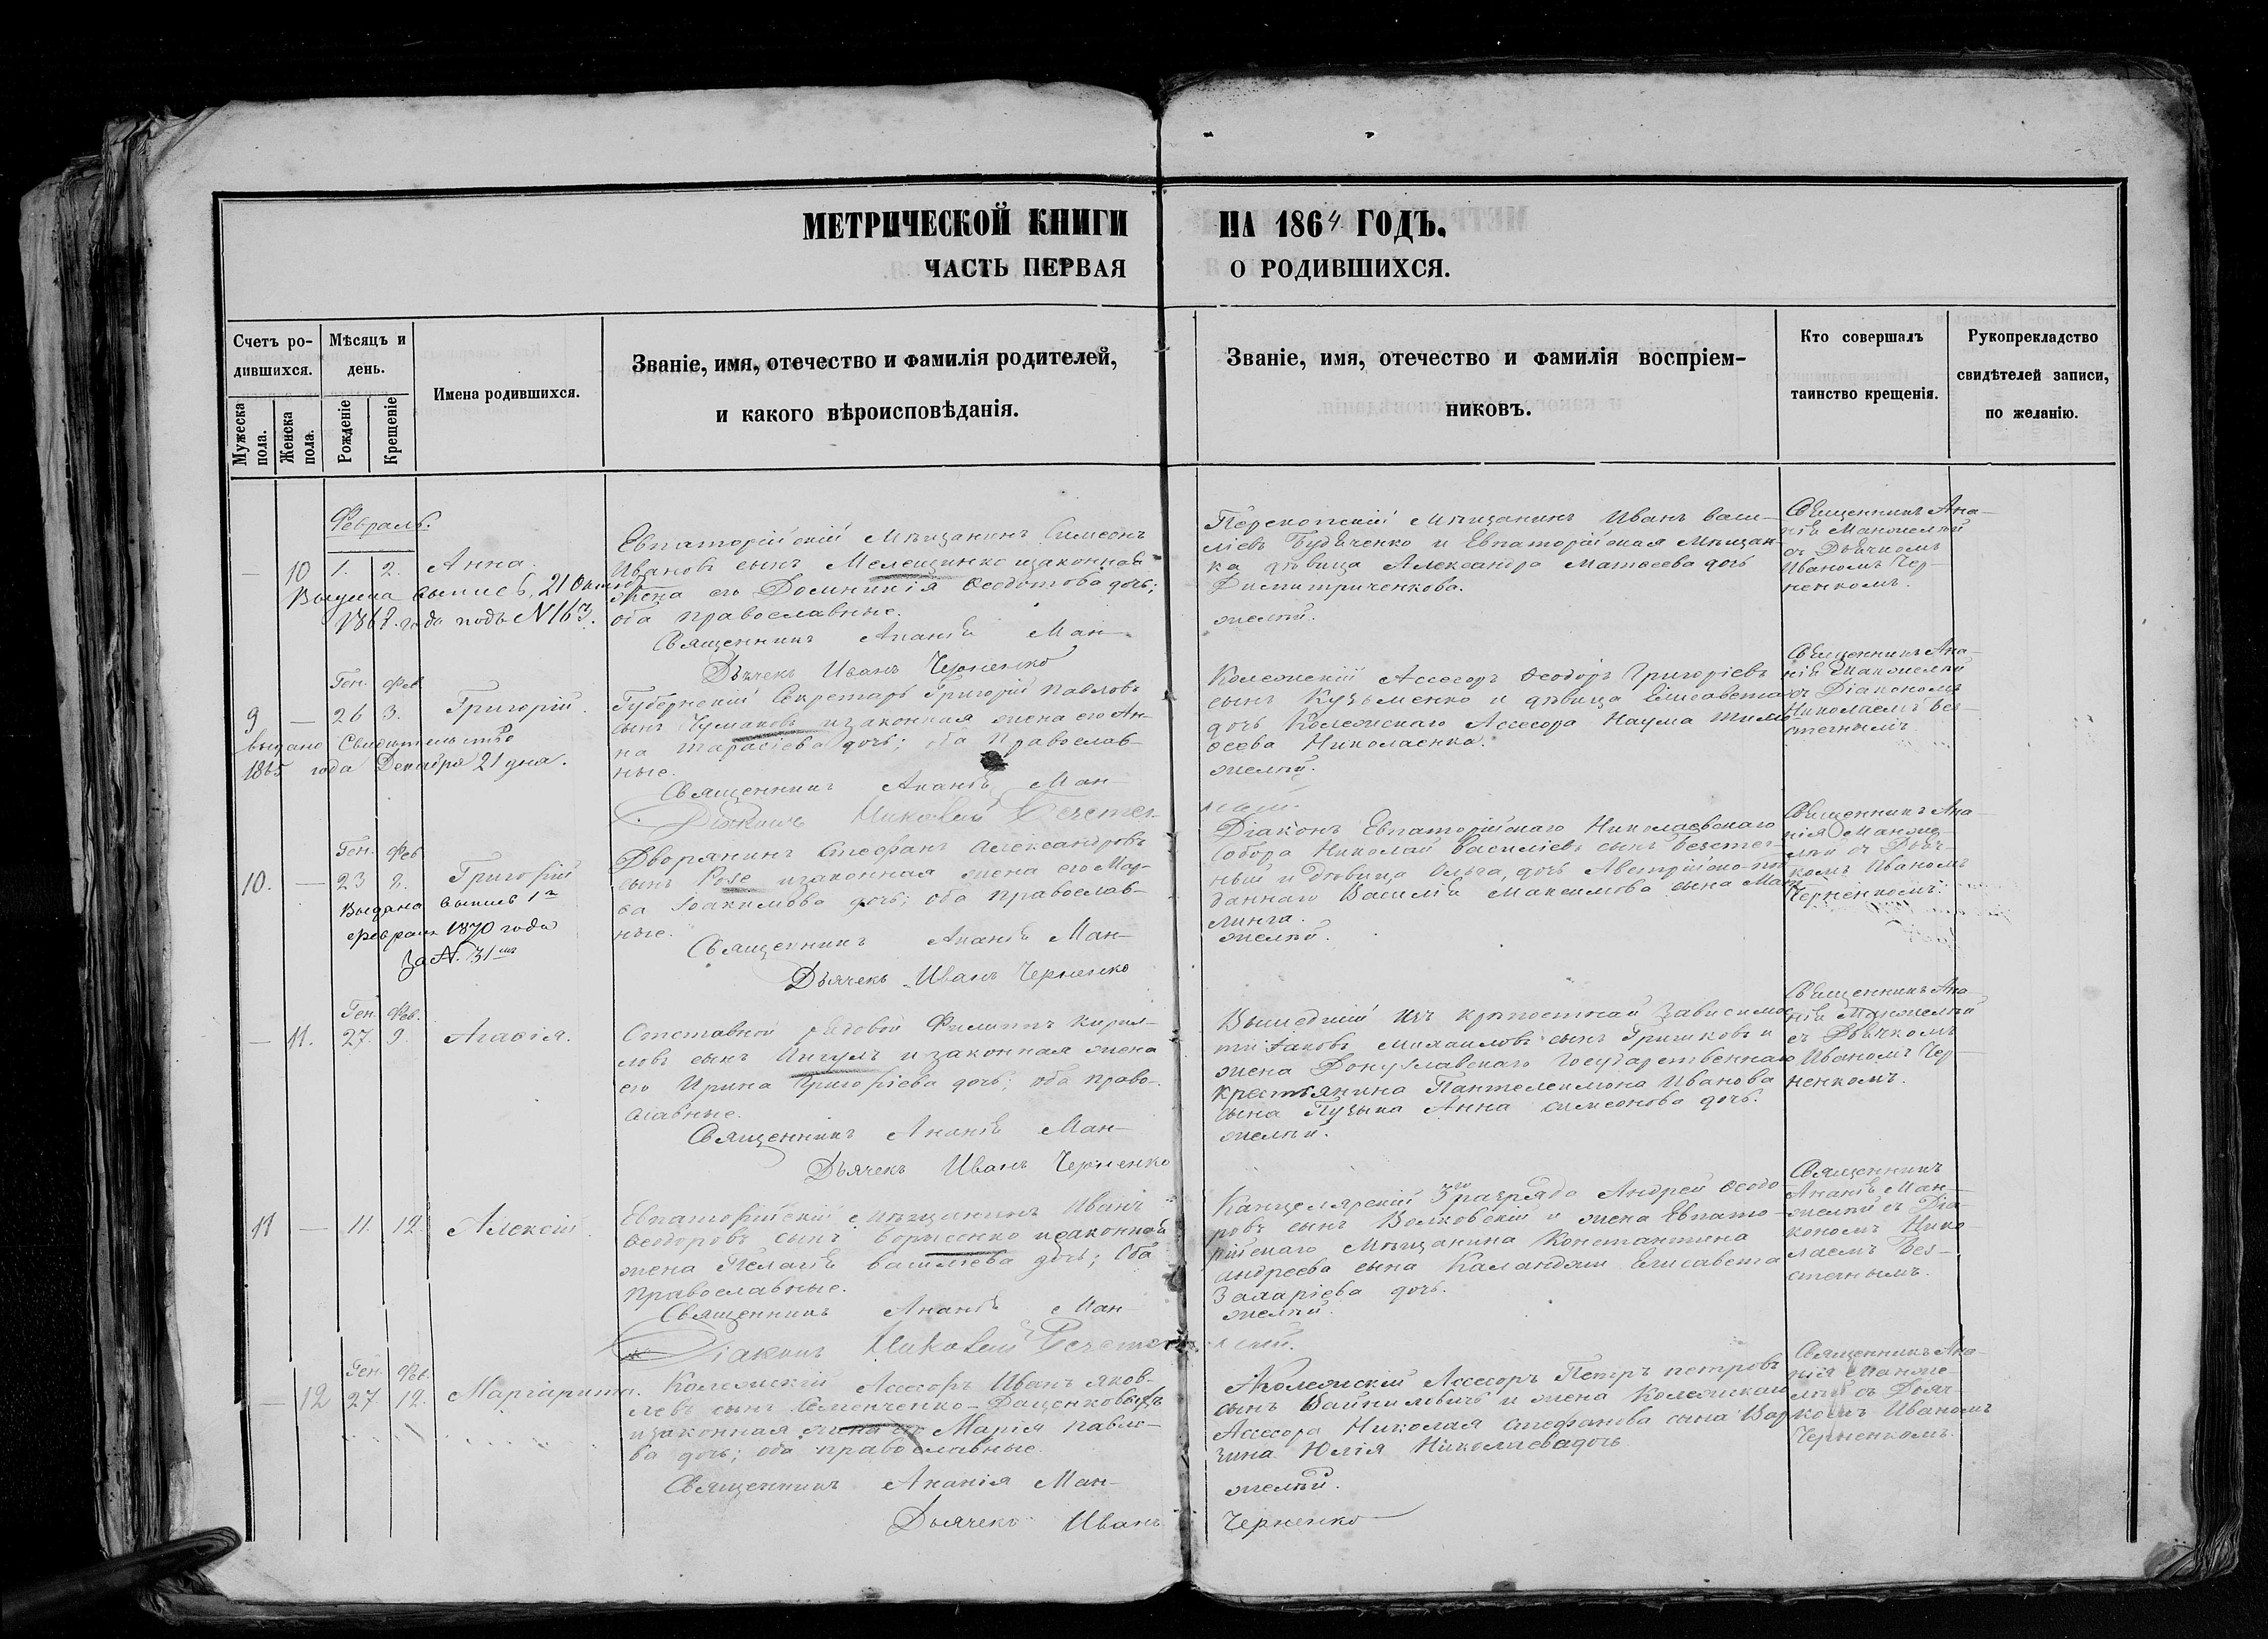 МЕТРИЧЕСКОЙ КНИГИ НА 1864 ГОДЪ.
ЧАСТЬ ПЕРВАЯ О РОДИВШИХСЯ.
Счетъ ро-
дившихся.
Мужеска
пола.
Женска
пола.
Мѣсяцъ и
день.
Рожденіе
Крещеніе
Имена родившихся.
Званіе, имя, отечество и фамилія родителей,
и какого вѣроисповѣданія.
Званіе, имя, отечество и фамилія воспріем-
никовъ.
Кто совершалъ
таинство крещенія.
Рукоприкладство
свидѣтелей записи,
по желанію.
Февраль.
— 10 1. 2. Анна.
Выдана выпись, 21 Октяб
186 года подъ N 163.
Евпаторійскій мѣщанинъ Симеонъ
Ивановъ сынъ изаконная
жена его Домникія Ѳеодотова дочь;
оба православные.
Священникъ Ананія Ман-
Дьячекъ Иванъ Черненко
Перекопскій мѣщанинъ Иванъ Васи-
ліевъ и Евпаторійская мѣщан-
ка дѣвица Александра Матѳеева дочь
Димитриченкова.
желѣй.
Священникъ Ана-
нія Манжелѣй
съ Дьячкомъ
Иваномъ Чер-
ненкомъ.
Ген. Фев.
9 — 26 3. Григорій.
выдано Свидѣтельство
1865 года Декабря 21 дня.
Губернскій Секретарь Григорій Павловъ
сынъ Чумаковъ изаконная жена его Ан-
на Тарасіева дочь; оба Православ-
ные.
Священникъ Ананія Ман-
Діаконъ Николай Безстеж-
Колежскій Ассесоръ Ѳеодоръ Григоріевъ
сынъ Кузьменко и дѣвица Елисавета
дочь Колежскаго Ассесора Наума Тимо-
ѳеева Николаенка.
желѣй.
Священникъ Ана-
нія Манжелѣй
съ Діакономъ
Николаемъ Без-
Ген. Фев.
10. — 23 8. Григорій
Выдана выпись 1го
февраля 1870 года
за N. 31мъ
Дворянинъ Стефанъ Александровъ
сынъ Розе изаконная жена его Мар-
ѳа Іоакимова дочь; оба православ-
ные.
Священникъ Ананія Ман-
Дьячекъ Иванъ Черненко
Діаконъ Евпаторійскаго Николаевскаго
Собора Николай Василіевъ сынъ
ный и дѣвица Ольга, дочь Австрійско-под
даннаго Василія Максимова сына
линга.
желѣй.
Священникъ Ана-
нія Манже-
лѣй съ Дьяч-
комъ Иваномъ
Черненкомъ.
Ген. Фев.
— 11. 27. 9. Агаѳія.
Отставной рядовой Филиппъ Кирил-
ловъ сынъ Ингулъ изаконная жена
его Ирина Григоріева дочь; оба право-
славные.
Священникъ Ананія Ман-
Дьячекъ Иванъ Черненко
Вышедшій изъ крѣпостной зависимос
ти Іаковъ Михаиловъ сынъ Гришковъ и
жена Донузлавскаго Государственнаго
крестьянина Пантелеимона Иванова
сына Пузыка Анна Симеонова дочь.
желѣй.
Священникъ Ана-
нія Манжелѣй
съ Дьячкомъ
Иваномъ Чер-
ненкомъ.
11 — 11. 12. Алексій.
Евпаторійскій мѣщанинъ Иванъ
Ѳеодоровъ сынъ Борисенко изаконная
жена Пелагія Василіева дочь; Оба
Православные.
Священникъ Ананія Ман-
Діаконъ Николай
Канцелярскій 3го разряда Андрей Ѳеодо-
ровъ сынъ Волковскій и жена Евпато-
рійскаго мѣщанина Константина
Андреева сына Елисавета
Захаріева дочь.
желѣй.
Священникъ
Ананія Ман-
желѣй съ Діа-
кономъ Нико-
лаемъ Без-
Ген. Фев.
— 12 27. 12. Маргарита.
Колежскій Ассесоръ Иванъ Яков-
левъ сынъ Семенченко-Даценковъ
изаконная жена его Марія Павло-
ва дочь; оба православные.
Священникъ Ананія Ман-
Дьячекъ Иванъ Черненко
Колежскій Ассесоръ Петръ Петровъ
сынъ и жена Колежскаго
Ассесора Николая Стефанова сына
зина Юлія Николаева дочь
желѣй.
Священникъ Ана-
нія Манже-
лѣй съ Дьяч-
комъ Иваномъ
Черненкомъ.